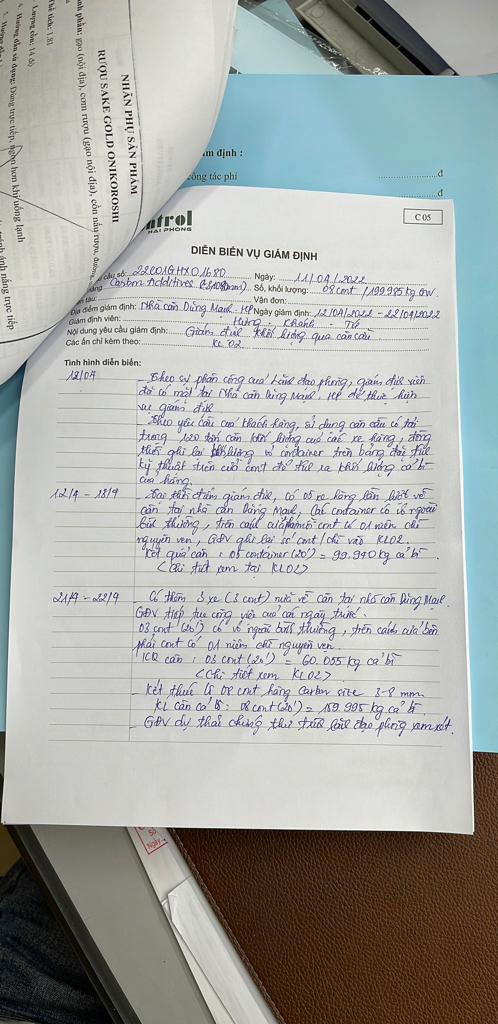 NHÃN PHỤ SẢN PHẨM
RƯỢU SAKE GOLD ONIKOROSHI
phần: gạo (nội địa), cơm rượu (gạo nội địa), cồn nấu rượu, đường
Thể tích: 1.8l
Lượng cồn: 14 độ
Hướng dẫn sử dụng: Dùng trực tiếp, ngon hơn khi uống lạnh
ánh nắng trực tiếp
định :
công tác phí
đ
đ
ntrol
HAI PHONG
C 05
DIỄN BIẾN VỤ GIÁM ĐỊNH
cầu số: 22C01GHX01680 Ngày: 11/04/2022
hàng Carbon Additives Số, khối lượng: 08 cont / 159.985 kg GW.
tàu: Vận đơn:
Địa điểm giám định: Nhà cân Dũng Mạnh - HP Ngày giám định: 12/04/2022 - 22/04/2022
Giám định viên: Hưng - Khánh - Tú
Nội dung yêu cầu giám định: Giám định khối lượng qua cân cầu
Các ấn chỉ kèm theo: KL02
Tình hình diễn biến:
12/04 - Theo sự phân công của Lãnh đạo phòng, giám định viên
đã có mặt tại Nhà cân Dũng Mạnh, HP để thực hiện
vụ giám định
- Theo yêu cầu của khách hàng, sử dụng cân cầu có tải
trọng 120 tấn cân khối lượng của các xe hàng, đồng
thời ghi lại khối lượng vỏ container trên bảng đặc tính
kỹ thuật trên cửa cont để tính ra khối lượng cả bì
của hàng.
12/4 - 18/4 - Tại thời điểm giám định, có 05 xe hàng lần lượt về
cân tại nhà cân Dũng Mạnh, các container có vỏ ngoài
bình thường, trên cánh cửa phải mỗi cont có 01 niêm chì
nguyên vẹn, GĐV ghi lại số cont / chì vào KL02.
Kết quả cân : 05 container (20') = 99.940 kg cả bì
<Chi tiết xem tại KL02>
21/4 - 22/4 - Có thêm 3 xe (3 cont) nữa về cân tại nhà cân Dũng Mạnh.
GĐV tiếp tục công việc như các ngày trước.
03 cont (20') có vỏ ngoài bình thường, trên cánh cửa bên
phải cont có 01 niêm chì nguyên vẹn.
KQ cân : 03 cont (20') = 60.055 kg cả bì
<Chi tiết xem KL02>
- Kết thúc lô 08 cont hàng Carbon size 3-8 mm.
KL cân cả bì : 08 cont (20') = 159.995 kg cả bì.
- GĐV dự thảo chứng thư trình lãnh đạo phòng xem xét.
Số
Ngày